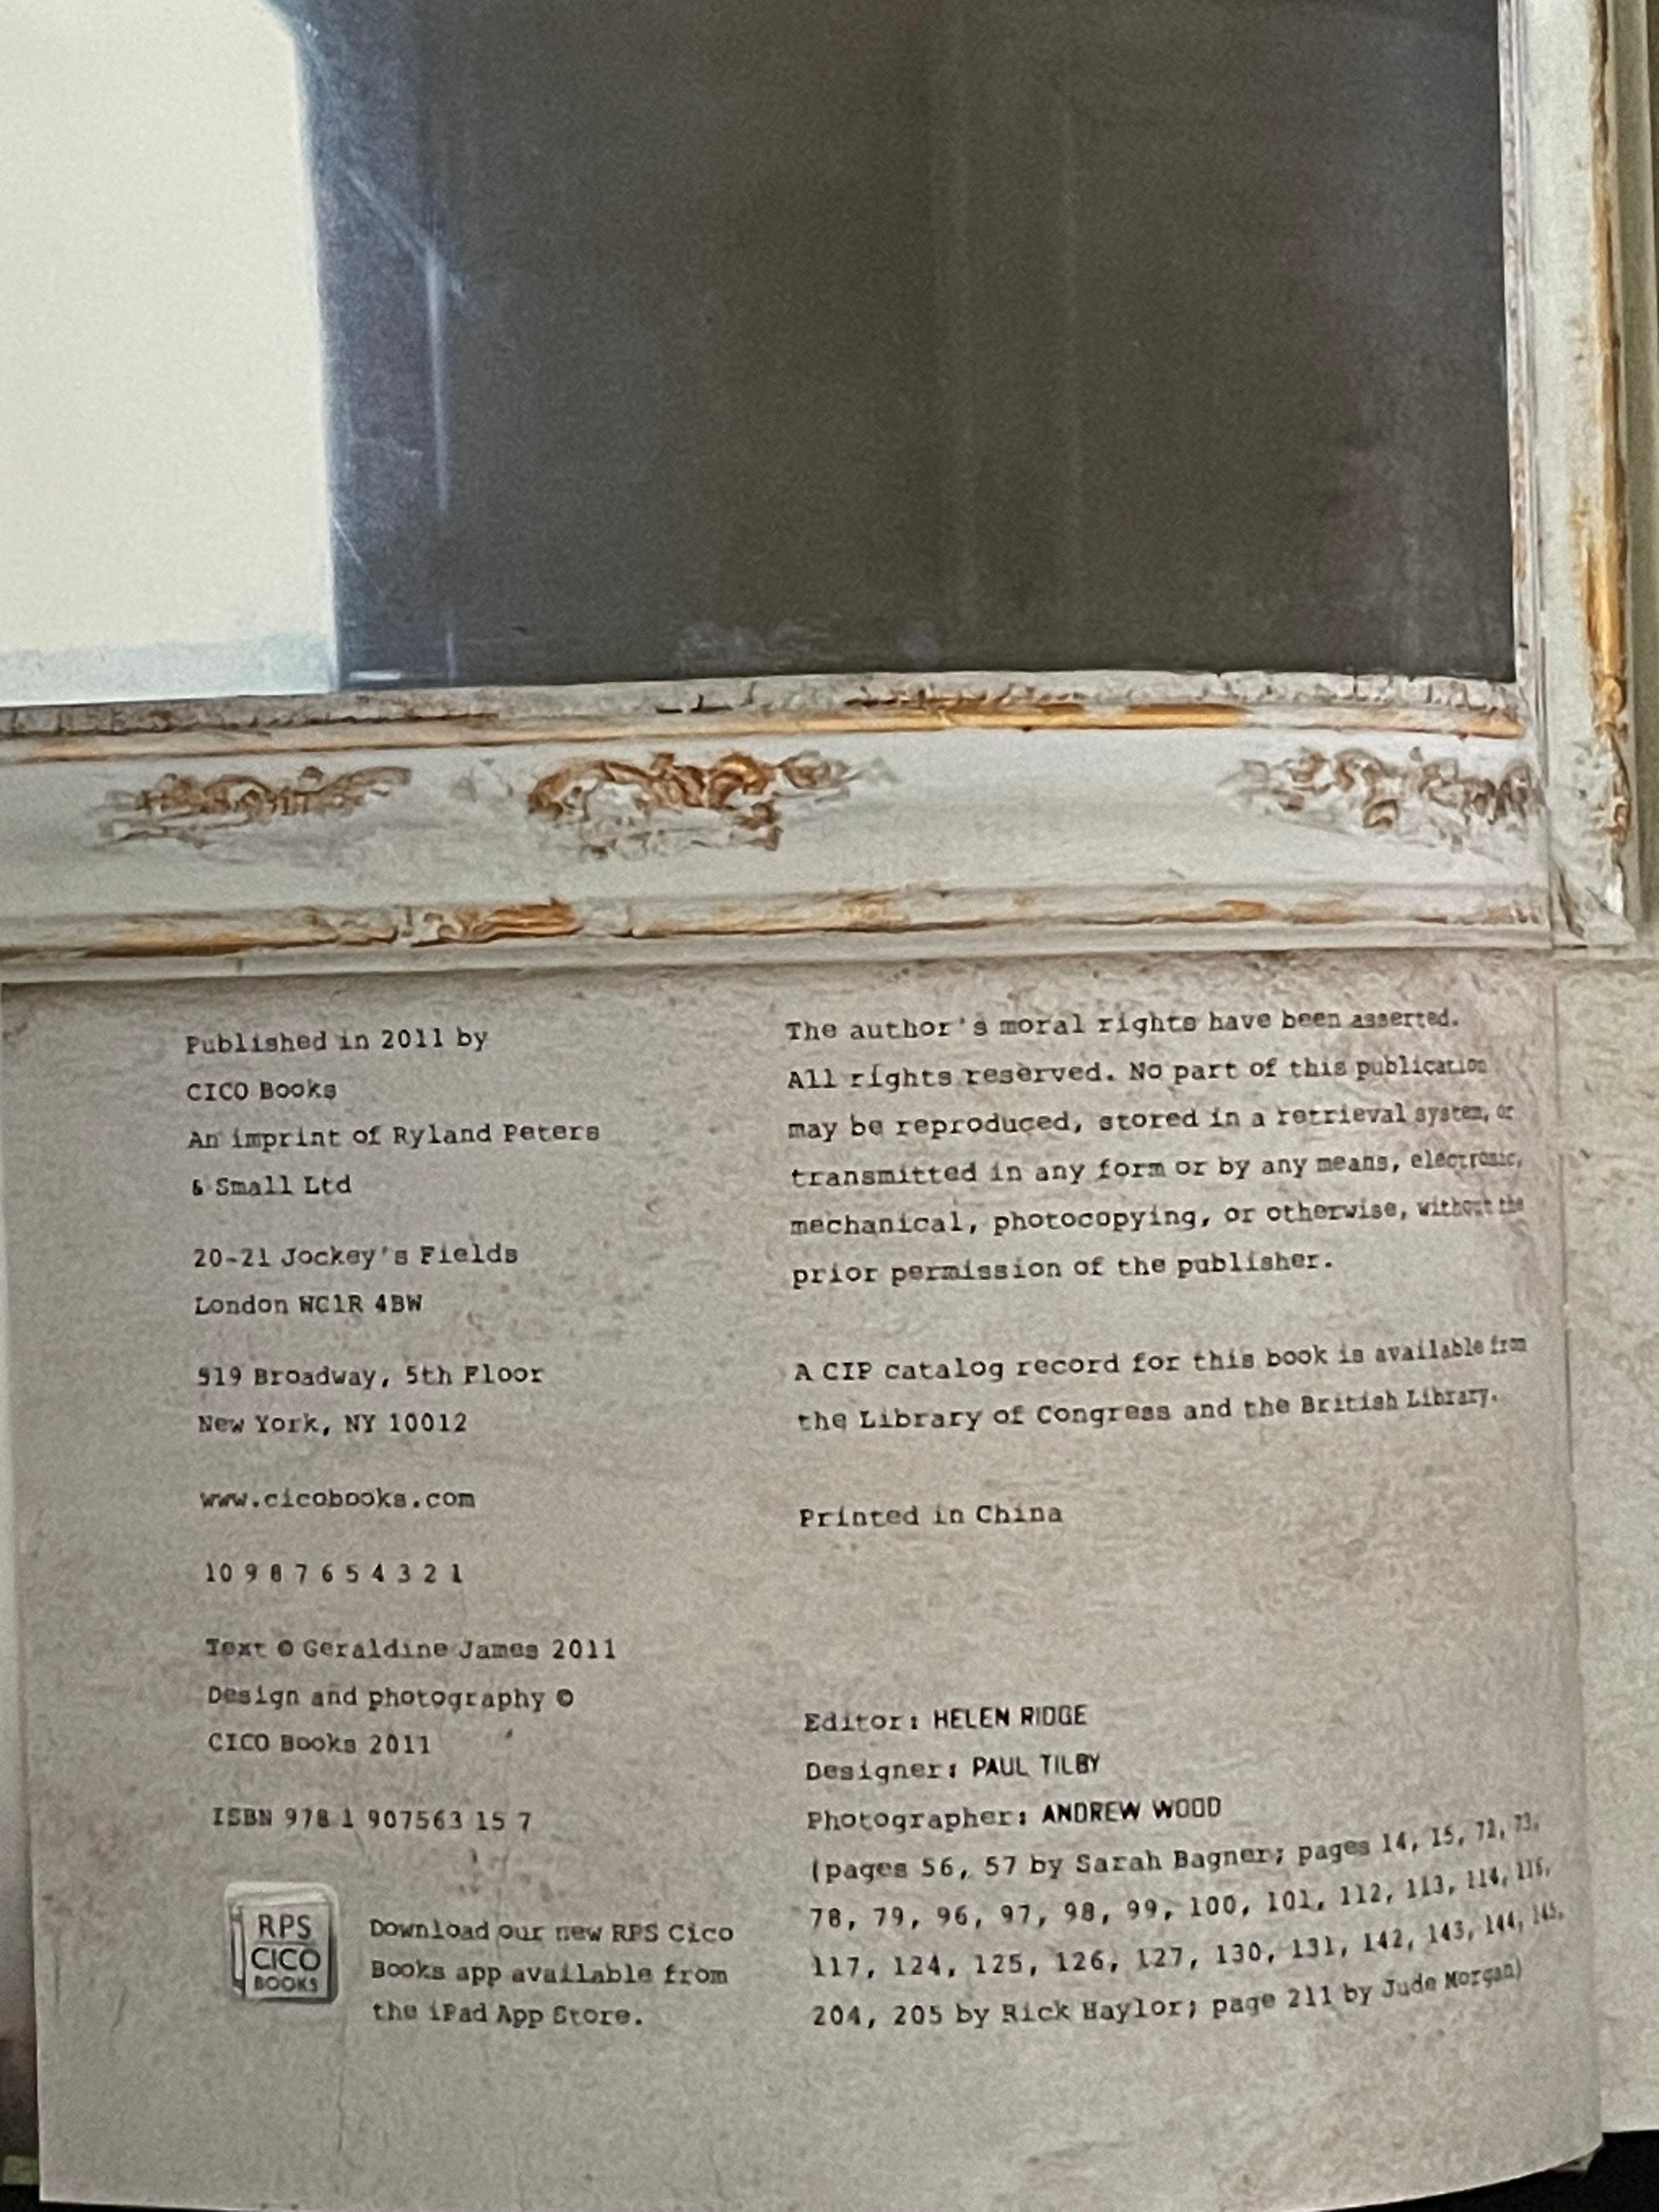 Published in 2011 by
CICO Books
An imprint of Ryland Peters
& Small Ltd
20-21 Jockey's Fields
London WC1R 4BW
519 Broadway, 5th Floor
New York, NY 10012
www.cicobooks.com
10 9 8 7 6 5 4 3 2 1
Text © Geraldine James 2011
Design and photography ©
CICO Books 2011
ISBN 978 1 907563 15 7
RPS
CICO
BOOKS
Download our new RPS Cico
Books app available from
the iPad App Store.
The author's moral rights have been asserted.
All rights reserved. No part of this publication
may be reproduced, stored in a retrieval system, or
transmitted in any form or by any means, electronic,
mechanical, photocopying, or otherwise, without the
prior permission of the publisher.
A CIP catalog record for this book is available from
the Library of Congress and the British Library.
Printed in China
Editor: HELEN RIDGE
Designer: PAUL TILBY
Photographer: ANDREW WOOD
(pages 56, 57 by Sarah Bagner; pages 14, 15, 72, 73,
78, 79, 96, 97, 98, 99, 100, 101, 112, 113, 114,
117, 124, 125, 126, 127, 130, 131, 142, 143, 144, 145,
204, 205 by Rick Haylor; page 211 by Jude Morgan)